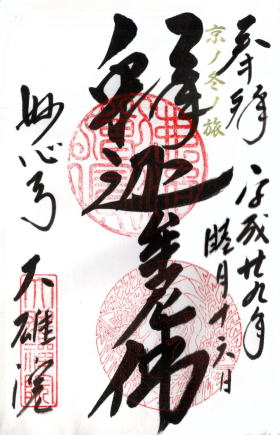 奉拝
平成廿九年
睦月十六日
京ノ冬ノ旅
釈迦牟尼佛
妙心寺 大雄院